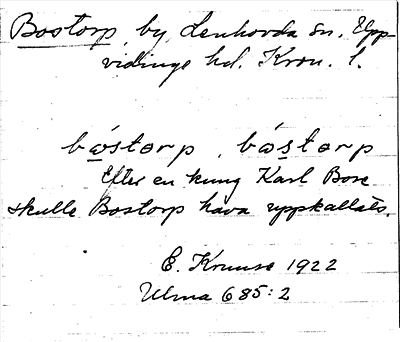 Bostorp, by, Lenhovda sn, Upp-
vidinge hd. Kron. l.
bώstorp, bώstorp
Efter en kung Karl Bose
skulle Bostorp hava uppkallats.
E. Kruuse 1922
Ulma 685:2